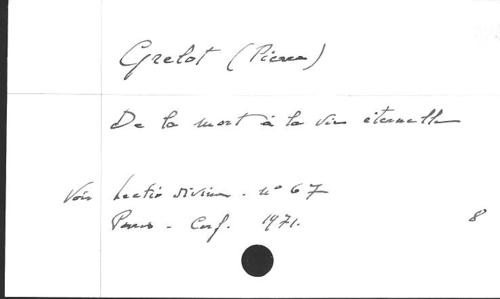 Grelot (Pierre)
De la mort à la vie éternelle
Voir Lectio divina - n° 67
Paris - Cerf. 1971. 8